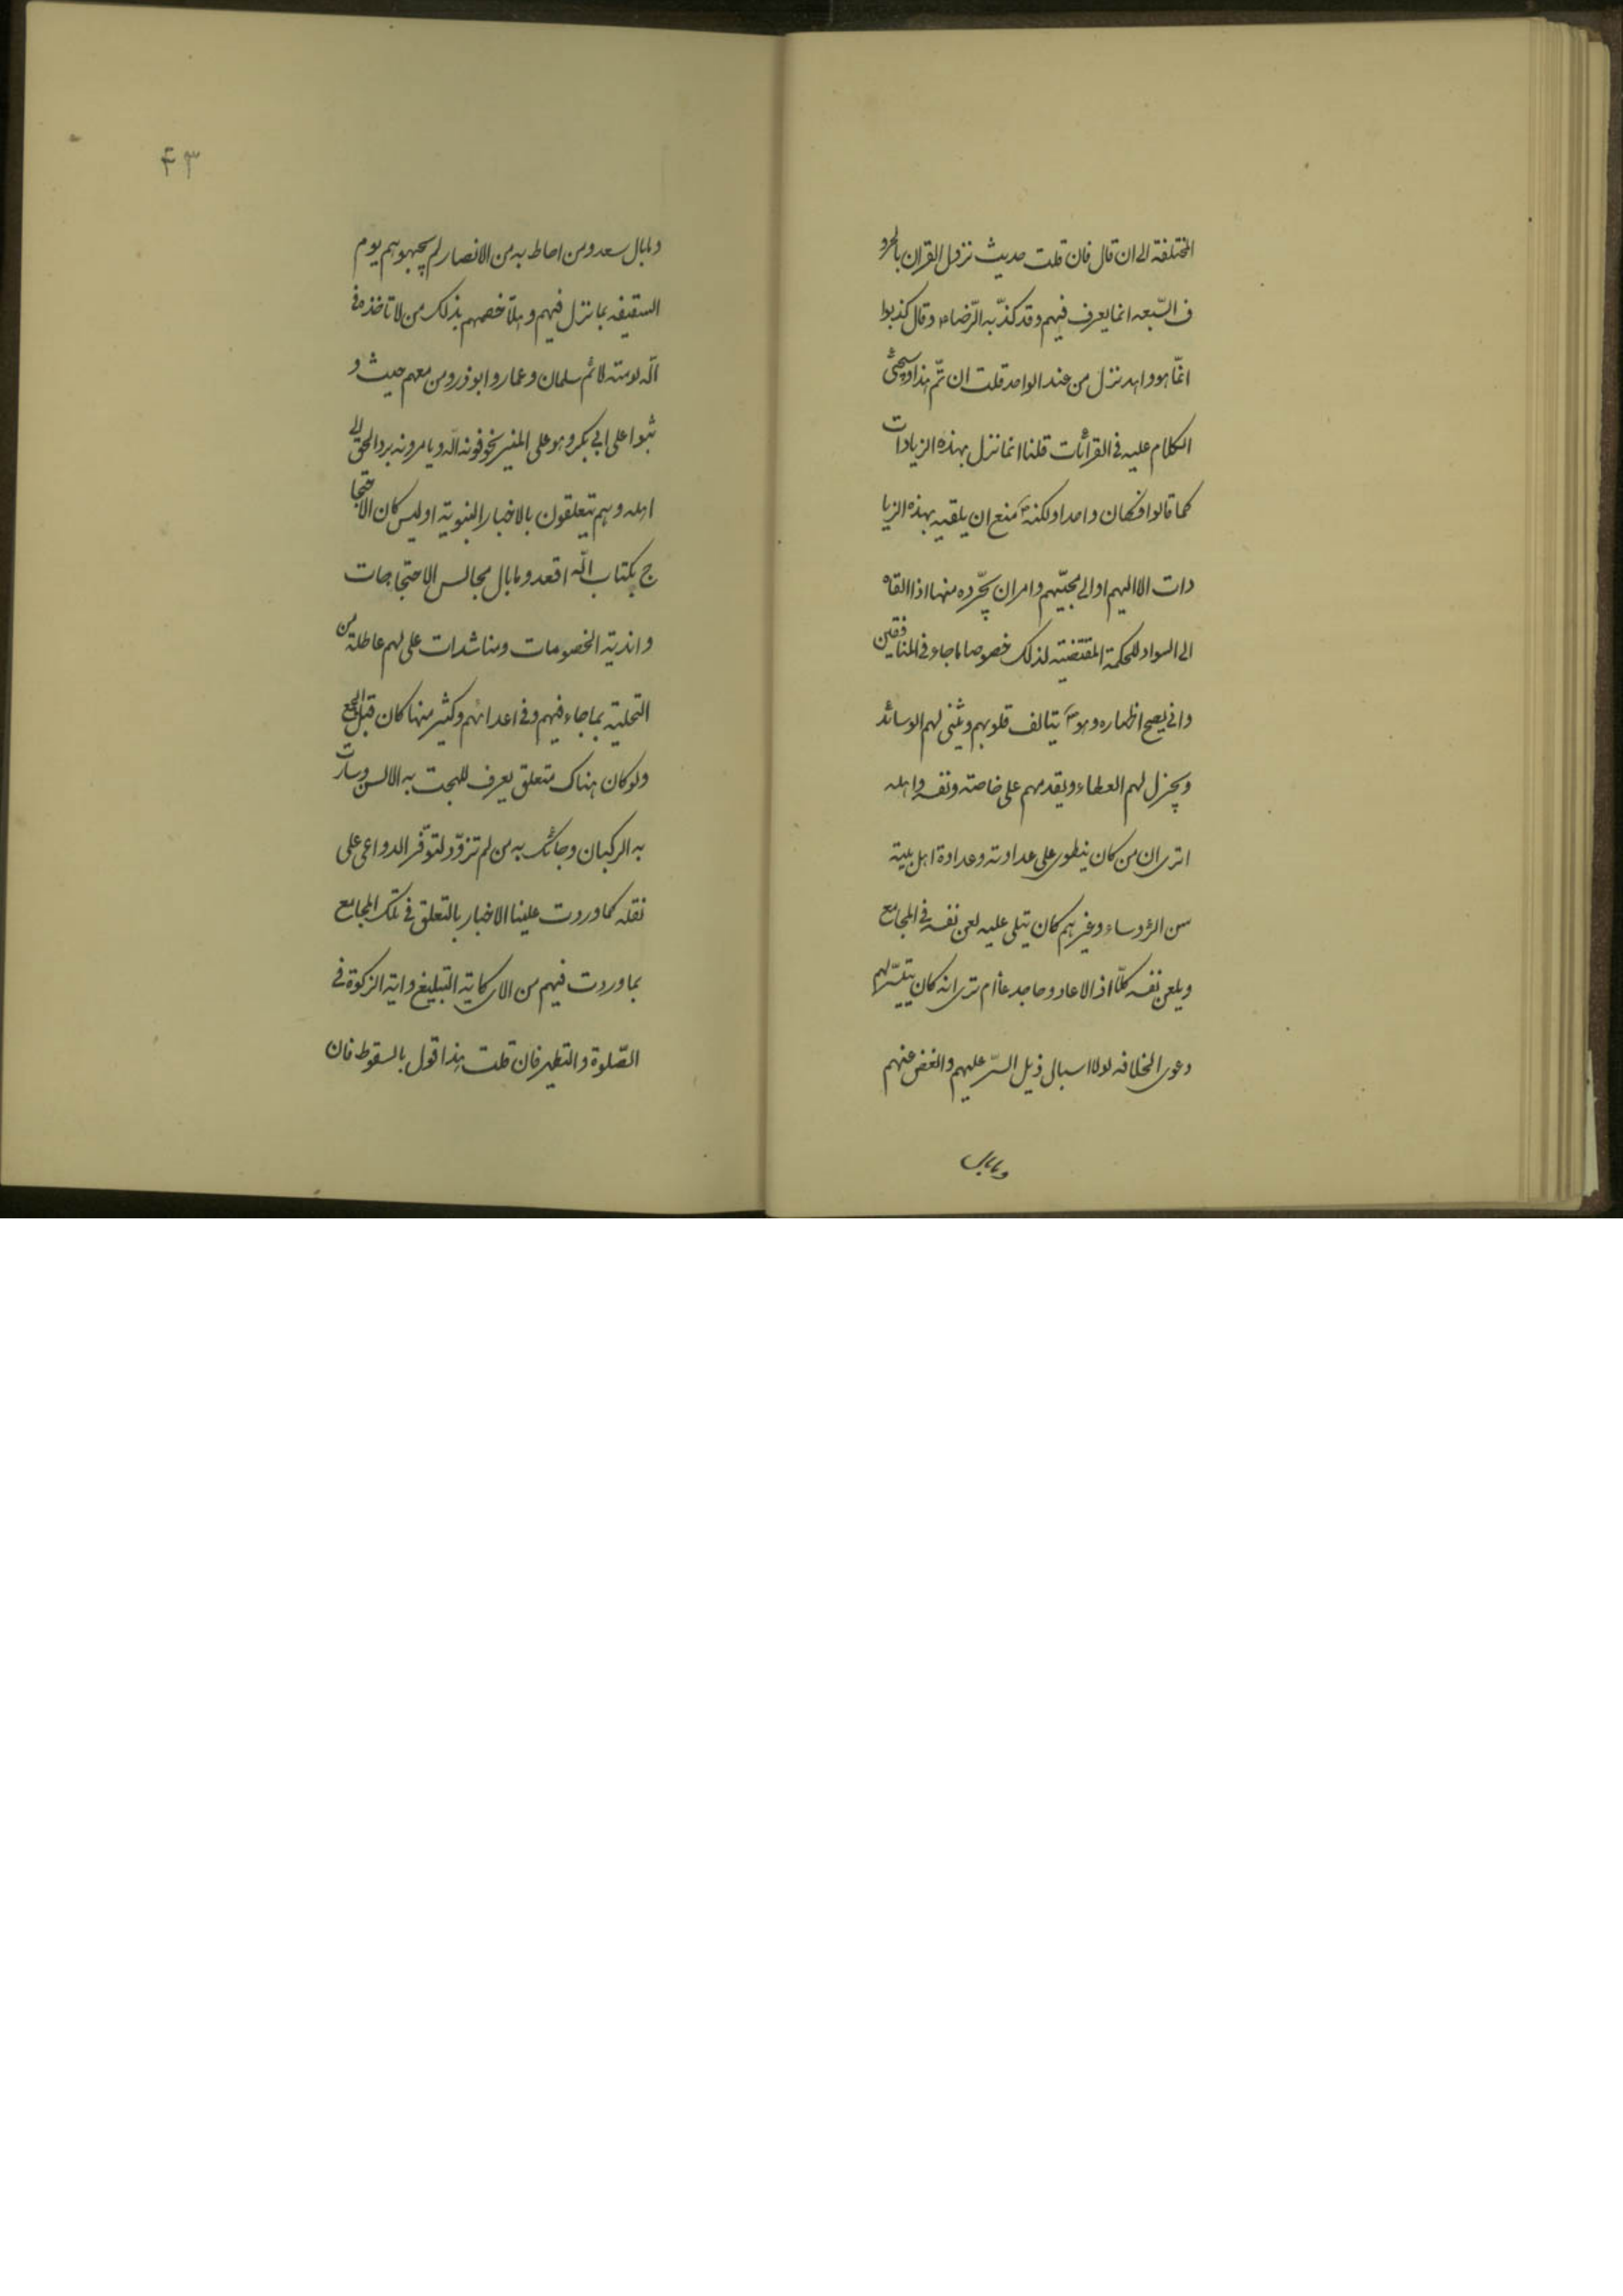 المختلفة الى ان قال فان قلت حديث نزول القران بالحرو
ف السّبعه انما يعرف فيهم وقد كذّبه الرّضاء وقال كذبوا
انّما هو واحد نزل من عند الواحد قلت ان تمّ هذا وسيجئ
الكلام عليه فى القرائات قلنا انما نزل بهذه الزيادات
كما قالوا فكان واحدا ولكنه منع ان يلقيه بهذه الزيا
دات الا اليهم او الى محبّيهم وامر ان يجّرده منها اذا القاه
الى السواد للحكمة المقتضية لذلك خصوصا ما جاء فى المنافقين
وانى يصح اظهاره وهو يتالف قلوبهم ويثنى لهم الوسائد
ويجزل لهم العطاء ويقدمهم على خاصته ونفسه واهله
اترى ان من كان ينطوى على عداوته وعداوة اهل بيته
من الرؤساء وغيرهم كان يتلى عليه لعن نفسه فى المجامع
ويلعن نفسه كلّا اذا لاعاد وحاجد عاام ترى انه كان يتيسّر لهم
دعوى الخلافه لولا اسبال ذيل السّتر عليهم والغض عنهم
وما بال
۴۳
وما بال سعد ومن احاط به من الانصار لم يجبهوهم يوم
السقيفه بما نزل فيهم وهلّا خصمهم بذلك من لا تاخذه فى
الله لومة لائم سلمان وعمار وابوذر ومن معهم حيث و
ثبوا على ابى بكر وهو على المنبر يخوفونه الله ويامرونه برد الحق الى
اهله وهم يتعلقون بالاخبار النبوية اوليس كان الاحتجا
ج بكتاب الله اقعد وما بال مجالس الاحتجاجات
واندية الخصومات ومناشدات على لهم عاطلة من
التحلية بما جاء فيهم وفى اعدائهم وكثير منها كان قبل الجمع
ولو كان هناك متعلق يعرف للهجت به الالسن وسارت
به الركبان وجائك به من لم تزوّد لتوّفر الدواعى على
نقله كما وردت علينا الاخبار بالتعلق فى تلك المجامع
بما وردت فيهم من الاى كاية التبليغ واية الزكوة فى
الصّلوة والتطهير فان قلت هذا قول بالسقوط فان